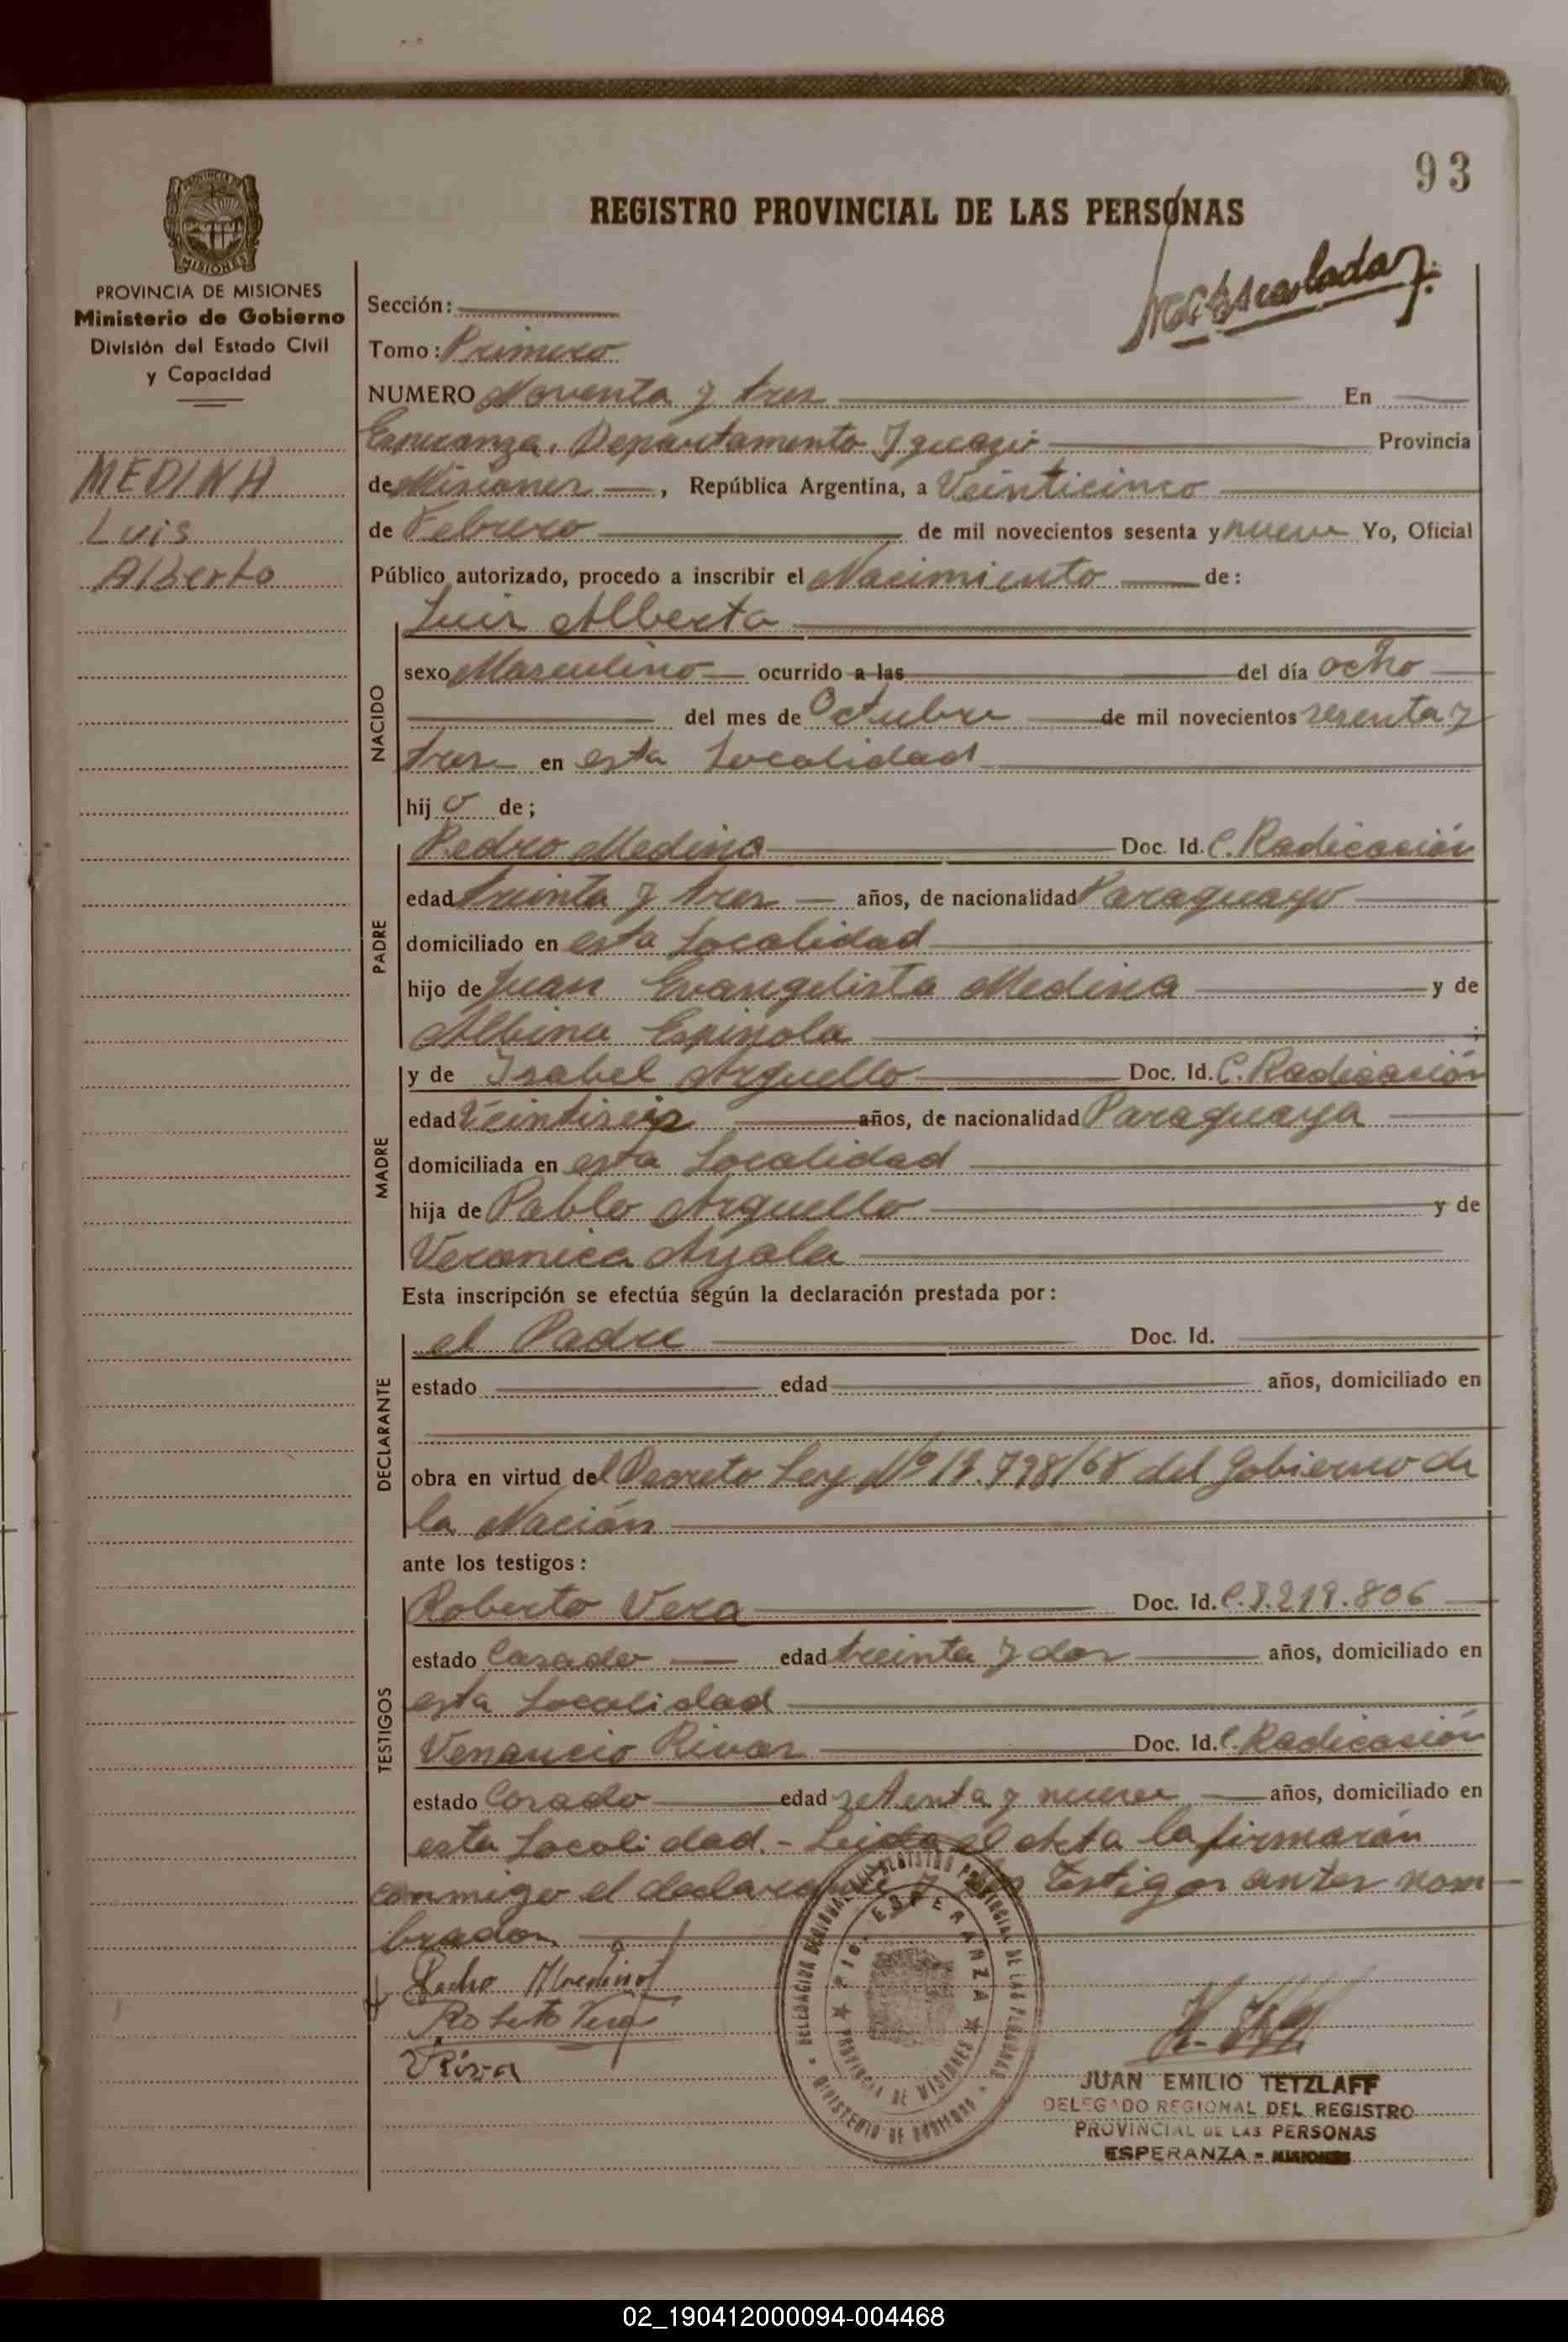 93
REGISTRO PROVINCIAL DE LAS PERSONAS
PROVINCIA DE MISIONES
Ministerio de Gobierno
División del Estado Civil
y Capacidad
MEDINA
Luis
Alberto
Sección:
Tomo: Primero
NUMERO Noventa y tres En
Esperanza. Departamento Iguazú Provincia
de Misiones, República Argentina, a Veinticinco
de Febrero de mil novecientos sesenta y nueve Yo, Oficial
Público autorizado, procedo a inscribir el Nacimiento de:
NACIDO
Luis Alberto
sexo Masculino ocurrido a las del día ocho
del mes de Octubre de mil novecientos sesenta y
tres en esta Localidad
hij o de;
PADRE
Pedro Medina Doc. Id. C. Radicación
edad treinta y tres años, de nacionalidad Paraguayo
domiciliado en esta Localidad
hijo de Juan Evangelista Medina y de
Albina Espinola ;
MADRE
y de Isabel Arguello Doc. Id. C. Radicación
edad Veintiseis años, de nacionalidad Paraguaya
domiciliada en esta Localidad
hija de Pablo Arguello y de
Veronica Ayala
Esta inscripción se efectúa según la declaración prestada por:
DECLARANTE
el Padre Doc. Id.
estado edad años, domiciliado en
obra en virtud del Decreto Ley Nº 17.798/68 del Gobierno de
la Nación
ante los testigos:
TESTIGOS
Roberto Vera Doc. Id. C.I. 219.806
estado Casado edad treinta y dos años, domiciliado en
esta Localidad
Venancio Rivas Doc. Id. C. Radicación
estado Casado edad setenta y nueve años, domiciliado en
esta Localidad.- Leida el Acta la firmarán
conmigo el declarante y los Testigos antes nom
brados
Pedro Medina
Roberto Vera
V Riva
DELEGACION REGIONAL DEL REGISTRO PROVINCIAL DE LAS PERSONAS
MINISTERIO DE GOBIERNO
PTO. ESPERANZA
PROVINCIA DE MISIONES
JUAN EMILIO TETZLAFF
DELEGADO REGIONAL DEL REGISTRO
PROVINCIAL DE LAS PERSONAS
ESPERANZA - MISIONES
02_190412000094-004468